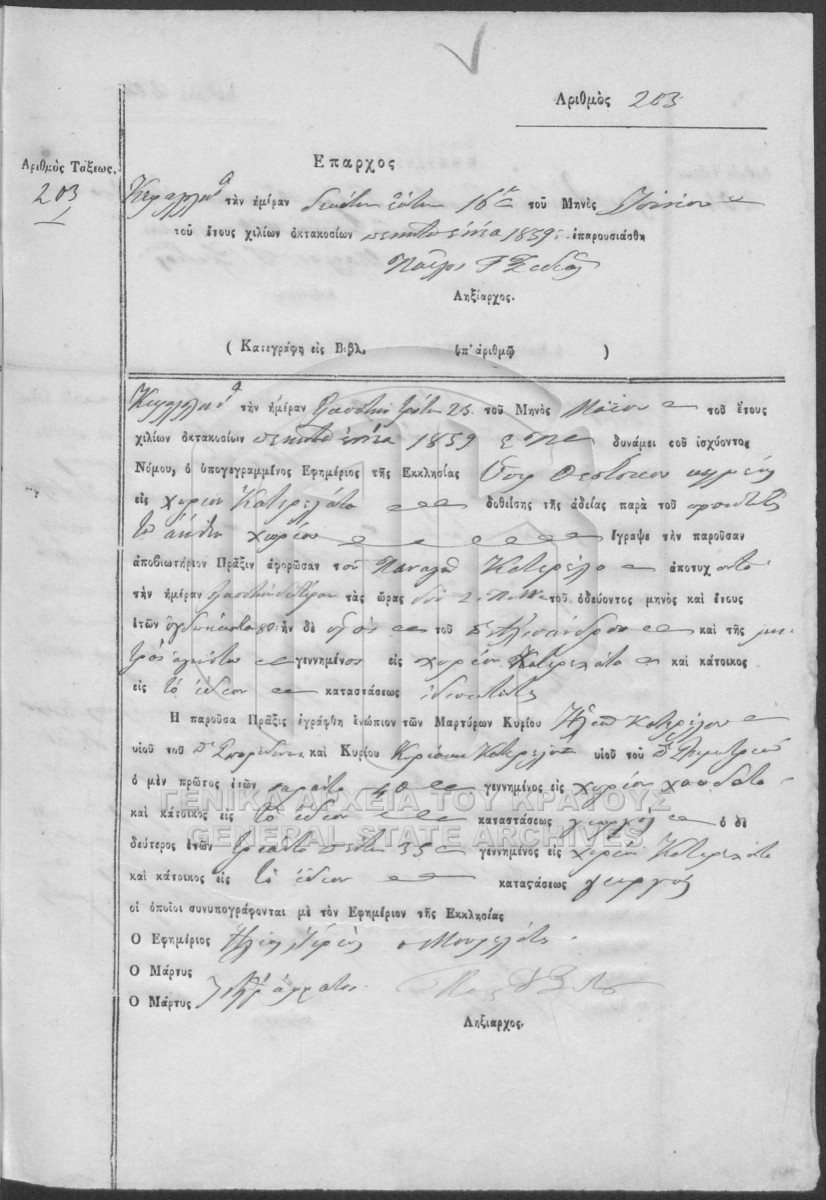 Αριθμὸς 203
Αριθμὸς Τάξεως.
203
Επαρχος
Κεφαλλην^α τὴν ἡμέραν δεκάτη ἕκτη 16 τοῦ Μηνὸς Ἰουνίου
τοῦ ἔτους χιλίων ὀκτακοσίων πενῆντα ἐννέα 1859 ἐπαρουσιάσθη
Ληξίαρχος.
( Κατεγράφη εἰς Βιβλ. ὑπ' ἀριθμῷ )
Κεφαλλην^α τὴν ἡμέραν εἰκοστὴν τρίτην 23 τοῦ Μηνὸς Μαΐου τοῦ ἔτους
χιλίων ὀκτακοσίων πενῆντα ἐννέα 1859 δυνάμει τοῦ ἰσχύοντος
Νόμου, ὁ ὑπογεγραμμένος Εφημέριος τῆς Εκκλησίας
εἰς χωρίον Κατερελάτα δοθείσης τῆς ἀδείας παρὰ τοῦ
χωρίου ἔγραψε τὴν παροῦσαν
ἀποβιωτήριον Πρᾶξιν ἀφορῶσαν τὸν Παναγῆ Κατερέλο ἀποτυχόντα
τὴν ἡμέραν εἰκοστὴν δευτέραν τὰς ὥρας δύο 2 τοῦ ὁδεύοντος μηνὸς καὶ ἔτους
ἐτῶν ὀγδοήκοντα 80 ἦν δὲ υἱὸς τοῦ π Ἀλισάνδρου καὶ τῆς μη-
τρὸς γεννημένος εἰς χωρίον Κατερελάτα καὶ κάτοικος
εἰς τὸ ἴδιον καταστάσεως
Η παροῦσα Πρᾶξις ἐγράφθη ἐνώπιον τῶν Μαρτύρων Κυρίου Κατερέλου
υἱοῦ τοῦ π Σπυρίδωνος καὶ Κυρίου Κατερέλου υἱοῦ τοῦ π Δημητρίου
ὁ μὲν πρῶτος ἐτῶν σαράντα 40 γεννημένος εἰς χωρίον
καὶ κάτοικος εἰς τὸ ἴδιον καταστάσεως γεωργὸς ὁ δὲ
δεύτερος ἐτῶν τριάντα πέντε 35 γεννημένος εἰς χωρίον Κατερελάτα
καὶ κάτοικος εἰς τὸ ἴδιον καταστάσεως γεωργὸς
οἱ ὁποῖοι συνυπογράφονται μὲ τὸν Εφημέριον τῆς Εκκλησίας
Ο Εφημέριος Ἠλίας Ἱερεὺς
Ο Μάρτυς
Ο Μάρτυς ἀγράμματοι
Ληξίαρχος.
ΓΕΝΙΚΑ ΑΡΧΕΙΑ ΤΟΥ ΚΡΑΤΟΥΣ
GENERAL STATE ARCHIVES